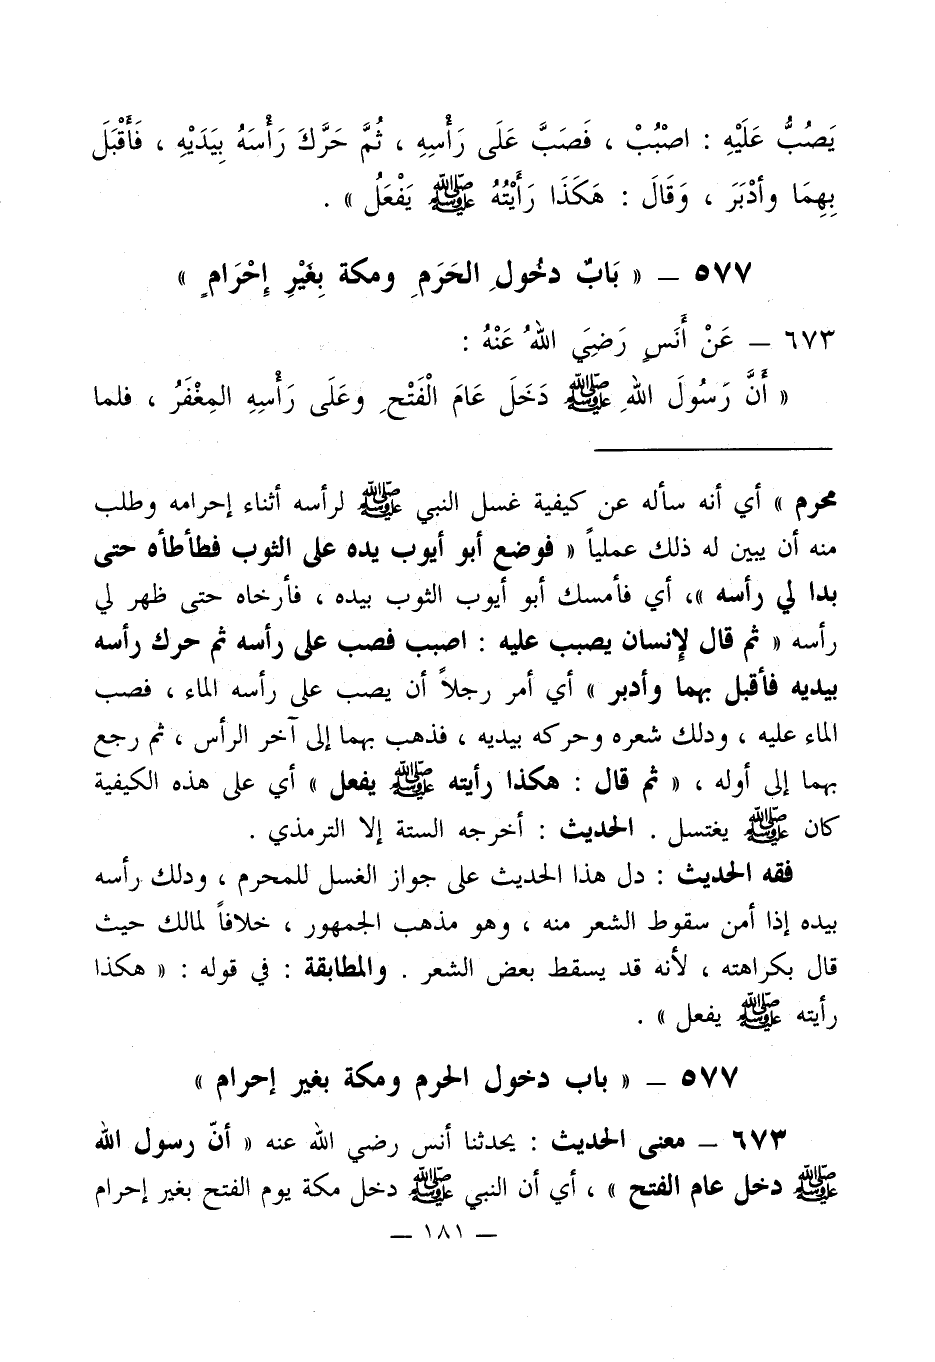 يَصُبُّ عَلَيْهِ : اصْبُبْ ، فَصَبَّ عَلَى رَأْسِهِ ، ثُمَّ حَرَّكَ رَأْسَهُ بِيَدَيْهِ ، فَأَقْبَلَ
بِهِمَا وأَدْبَرَ ، وَقَالَ : هَكَذَا رَأَيْتُهُ ﷺ يَفْعَلُ » .
٥٧٧ – « بَابٌ دخُولِ الحَرَمِ ومكة بِغَيْرِ إِحْرَامٍ »
٦٧٣ – عَنْ أَنَسٍ رَضِيَ اللهُ عَنْهُ :
« أَنَّ رَسُولَ اللهِ ﷺ دَخَلَ عَامَ الْفَتْحِ وعَلَى رَأْسِهِ المِغْفَرُ ، فلما
محرم » أي أنه سأله عن كيفية غسل النبي ﷺ لرأسه أثناء إحرامه وطلب
منه أن يبين له ذلك عملياً « فوضع أبو أيوب يده على الثوب فطأطأه حتى
بدا لي رأسه »، أي فأمسك أبو أيوب الثوب بيده ، فأرخاه حتى ظهر لي
رأسه « ثم قال لإنسان يصبب عليه : اصبب فصب على رأسه ثم حرك رأسه
بيديه فأقبل بهما وأدبر » أي أمر رجلاً أن يصب على رأسه الماء ، فصب
الماء عليه ، ودلك شعره وحركه بيديه ، فذهب بهما إلى آخر الرأس ، ثم رجع
بهما إلى أوله ، « ثم قال : هكذا رأيته ﷺ يفعل » أي على هذه الكيفية
كان ﷺ يغتسل . الحديث : أخرجه الستة إلا الترمذي .
فقه الحديث : دل هذا الحديث على جواز الغسل للمحرم ، ودلك رأسه
بيده إذا أمن سقوط الشعر منه ، وهو مذهب الجمهور ، خلافاً لمالك حيث
قال بكراهته ، لأنه قد يسقط بعض الشعر . والمطابقة : في قوله : « هكذا
رأيته ﷺ يفعل » .
٥٧٧ – « باب دخول الحرم ومكة بغير إحرام »
٦٧٣ – معنى الحديث : يحدثنا أنس رضي الله عنه « أنّ رسول الله
ﷺ دخل عام الفتح » ، أي أن النبي ﷺ دخل مكة يوم الفتح بغير إحرام
– ١٨١ –